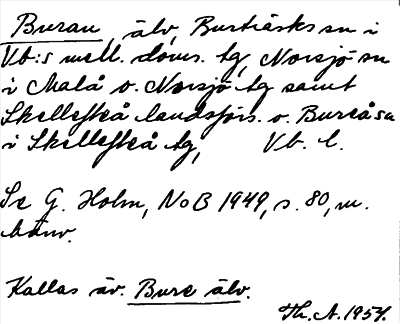 Burau, älv, Burträsks sn i
Vb:s mell. doms. tg, Norsjö sn
i Malå o. Norsjö tg samt
Skellefteå landsförs. o. Bureå sn
i Skellefteå tg, Vb. l.
Se G. Holm, NoB 1949, s. 80, m.
hänv.
Kallas äv. Bure älv.
Th. A. 1954.